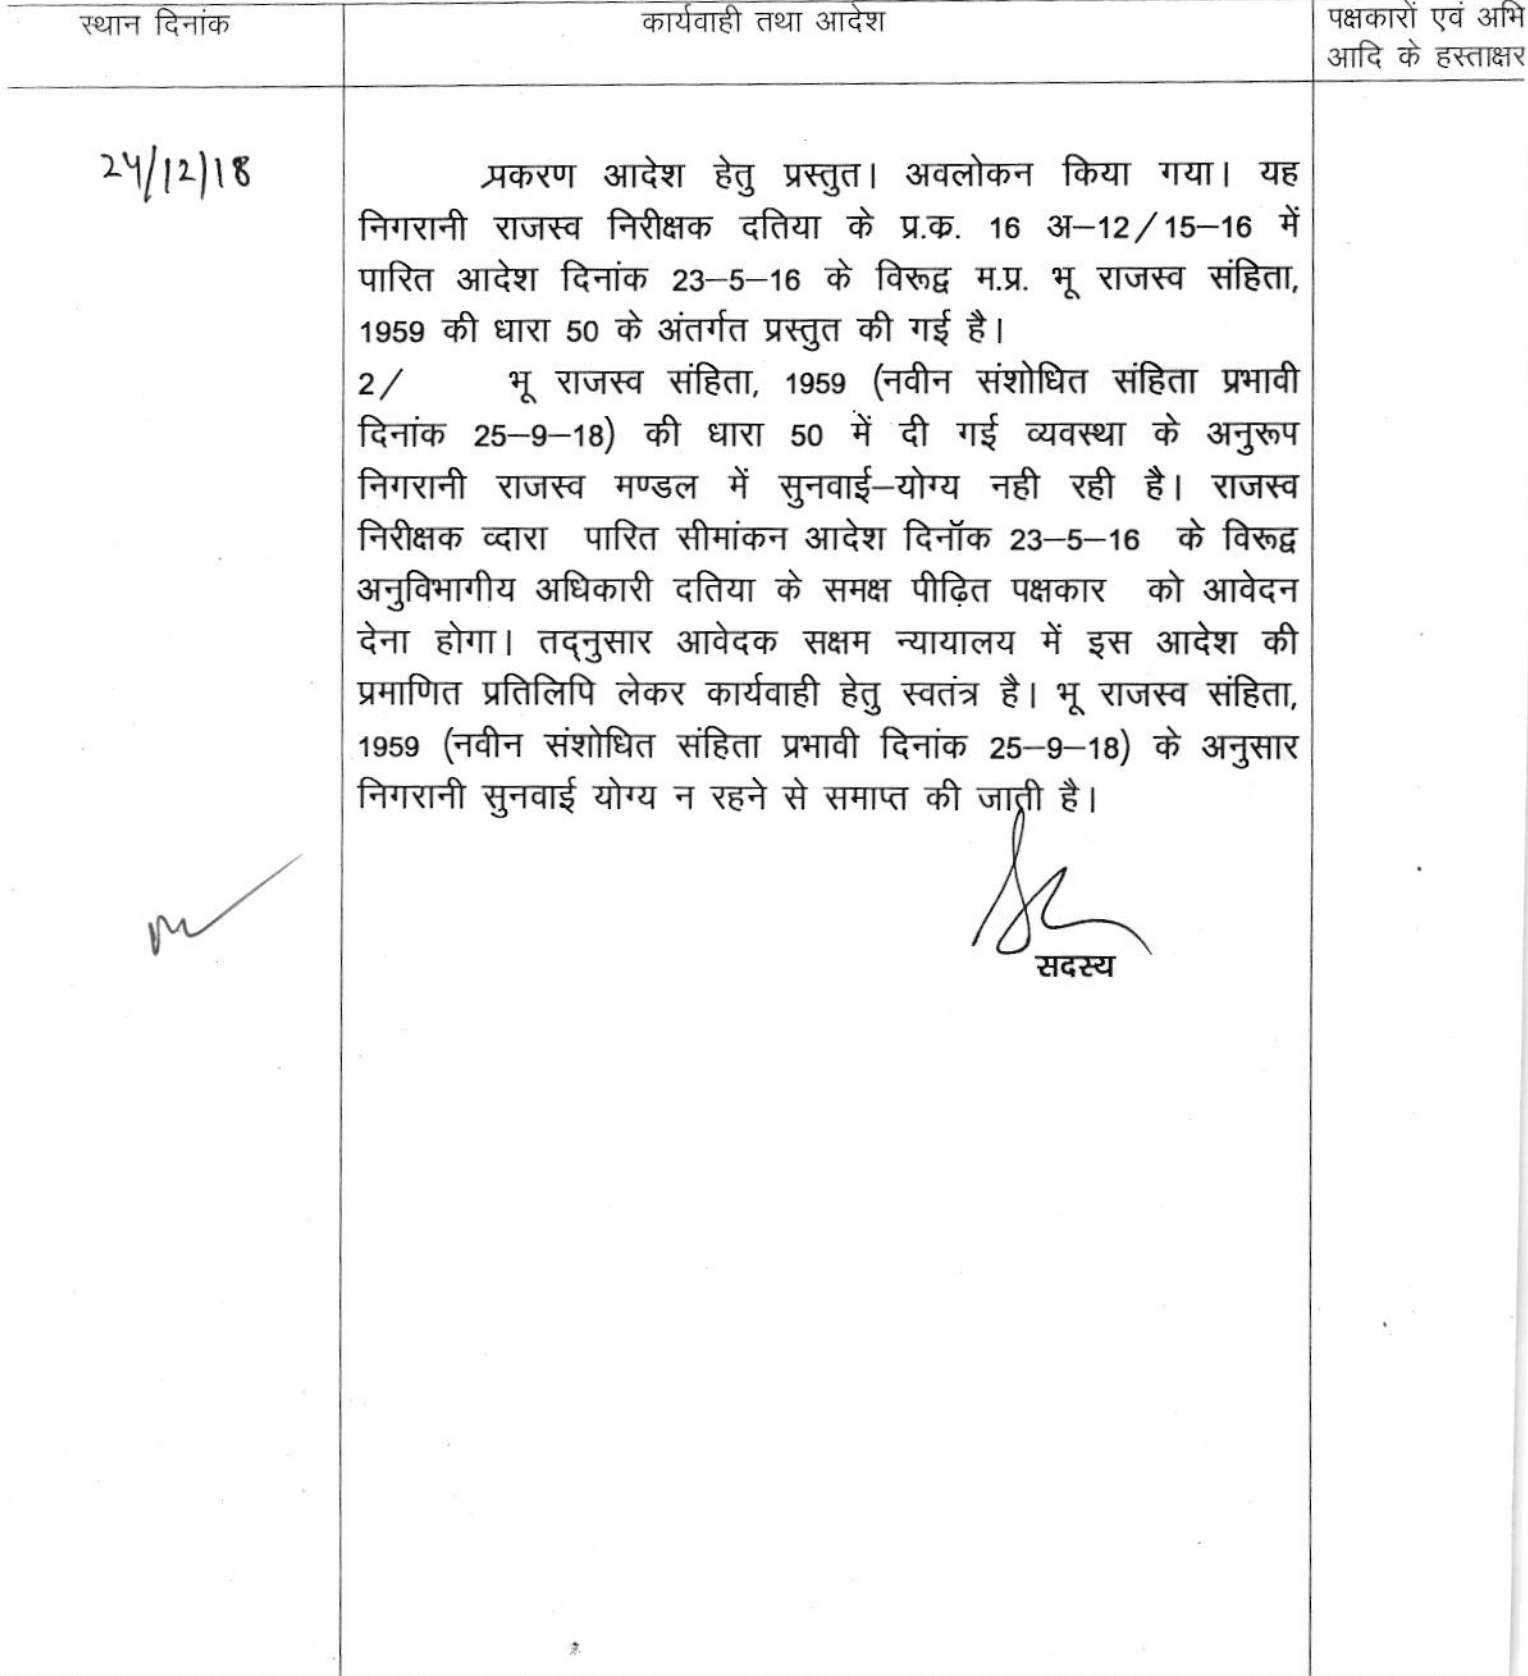 स्थान दिनांक
कार्यवाही तथा आदेश
पक्षकारों एवं अभि
आदि के हस्ताक्षर
24/12/18
प्रकरण आदेश हेतु प्रस्तुत। अवलोकन किया गया। यह
निगरानी राजस्व निरीक्षक दतिया के प्र.क. 16 अ–12/15–16 में
पारित आदेश दिनांक 23–5–16 के विरूद्व म.प्र. भू राजस्व संहिता,
1959 की धारा 50 के अंतर्गत प्रस्तुत की गई है।
2/ भू राजस्व संहिता, 1959 (नवीन संशोधित संहिता प्रभावी
दिनांक 25–9–18) की धारा 50 में दी गई व्यवस्था के अनुरूप
निगरानी राजस्व मण्डल में सुनवाई–योग्य नही रही है। राजस्व
निरीक्षक व्दारा पारित सीमांकन आदेश दिनॉक 23–5–16 के विरूद्व
अनुविभागीय अधिकारी दतिया के समक्ष पीढ़ित पक्षकार को आवेदन
देना होगा। तद्नुसार आवेदक सक्षम न्यायालय में इस आदेश की
प्रमाणित प्रतिलिपि लेकर कार्यवाही हेतु स्वतंत्र है। भू राजस्व संहिता,
1959 (नवीन संशोधित संहिता प्रभावी दिनांक 25–9–18) के अनुसार
निगरानी सुनवाई योग्य न रहने से समाप्त की जाती है।
सदस्य